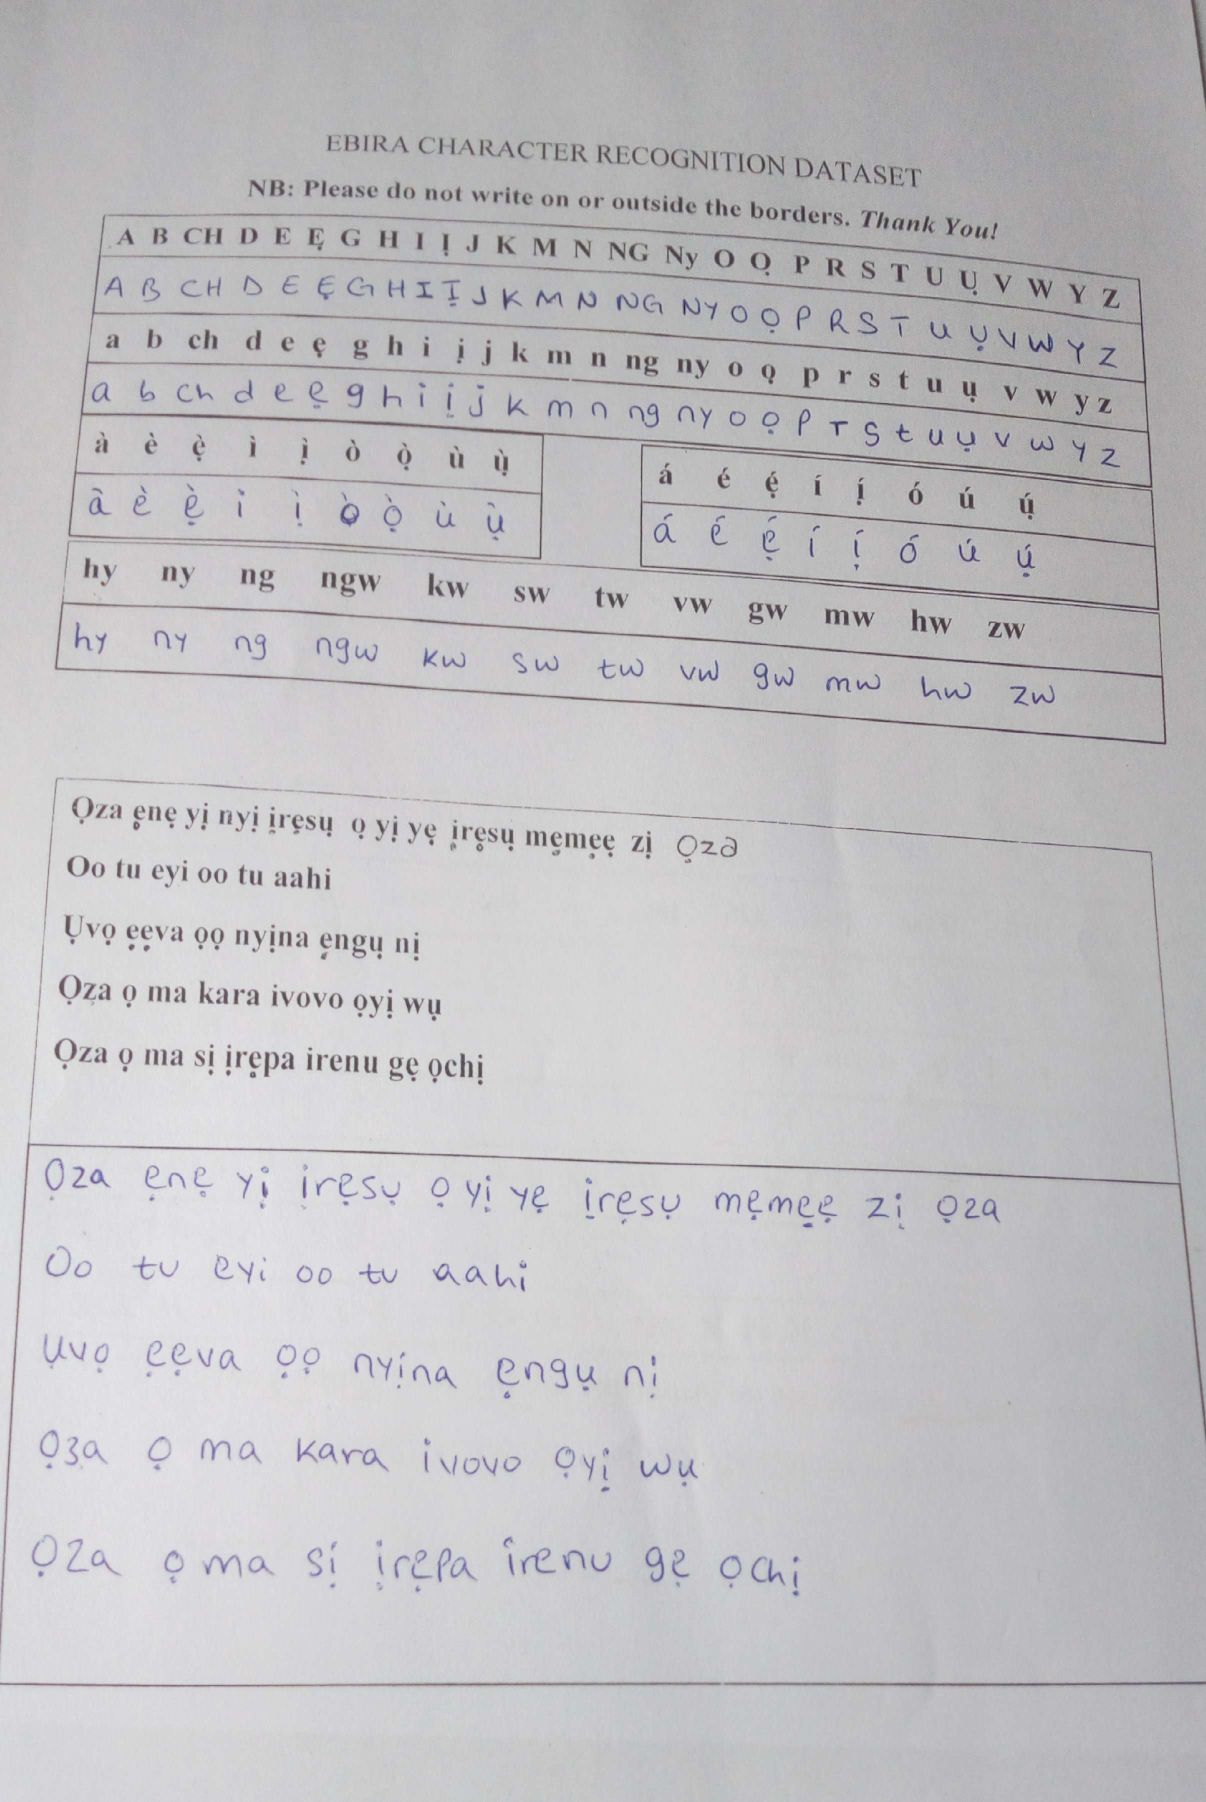 EBIRA CHARACTER RECOGNITION DATASET
NB: Please do not write on or outside the borders. Thank You!
A B CH D E Ẹ G H I Ị J K M N NG Ny O Ọ P R S T U Ụ V W Y Z
A B CH D E Ẹ G H I Ị J K M N NG NY O Ọ P R S T U Ụ V W Y Z
a b ch d e ẹ g h i ị j k m n ng ny o ọ p r s t u ụ v w y z
a b ch d e ẹ g h i ị j k m n ng ny o ọ p r s t u ụ v w y z
à è ẹ̀ ì ị̀ ò ọ̀ ù ụ̀
à è ẹ̀ ì ị̀ ò ọ̀ ù ụ̀
á é ẹ́ í ị́ ó ú ụ́
á é ẹ́ í ị́ ó ú ụ́
hy ny ng ngw kw sw tw vw gw mw hw zw
hy ny ng ngw kw sw tw vw gw mw hw zw
Ọza ẹnẹ yị nyị ịrẹsụ ọ yị yẹ ịrẹsụ mẹmẹẹ zị Ọza
Oo tu eyi oo tu aahi
Ụvọ ẹẹva ọọ nyịna ẹngụ nị
Ọza ọ ma kara ivovo ọyị wụ
Ọza ọ ma sị ịrẹpa irenu gẹ ọchị
Ọza ẹnẹ yị ịrẹsụ ọ yị yẹ ịrẹsụ mẹmẹẹ zị ọza
Oo tu eyi oo tu aahi
Ụvọ ẹẹva ọọ nyịna ẹngụ nị
Ọza ọ ma kara ivovo ọyị wụ
Ọza ọ ma sị ịrẹpa irenu gẹ ọchị